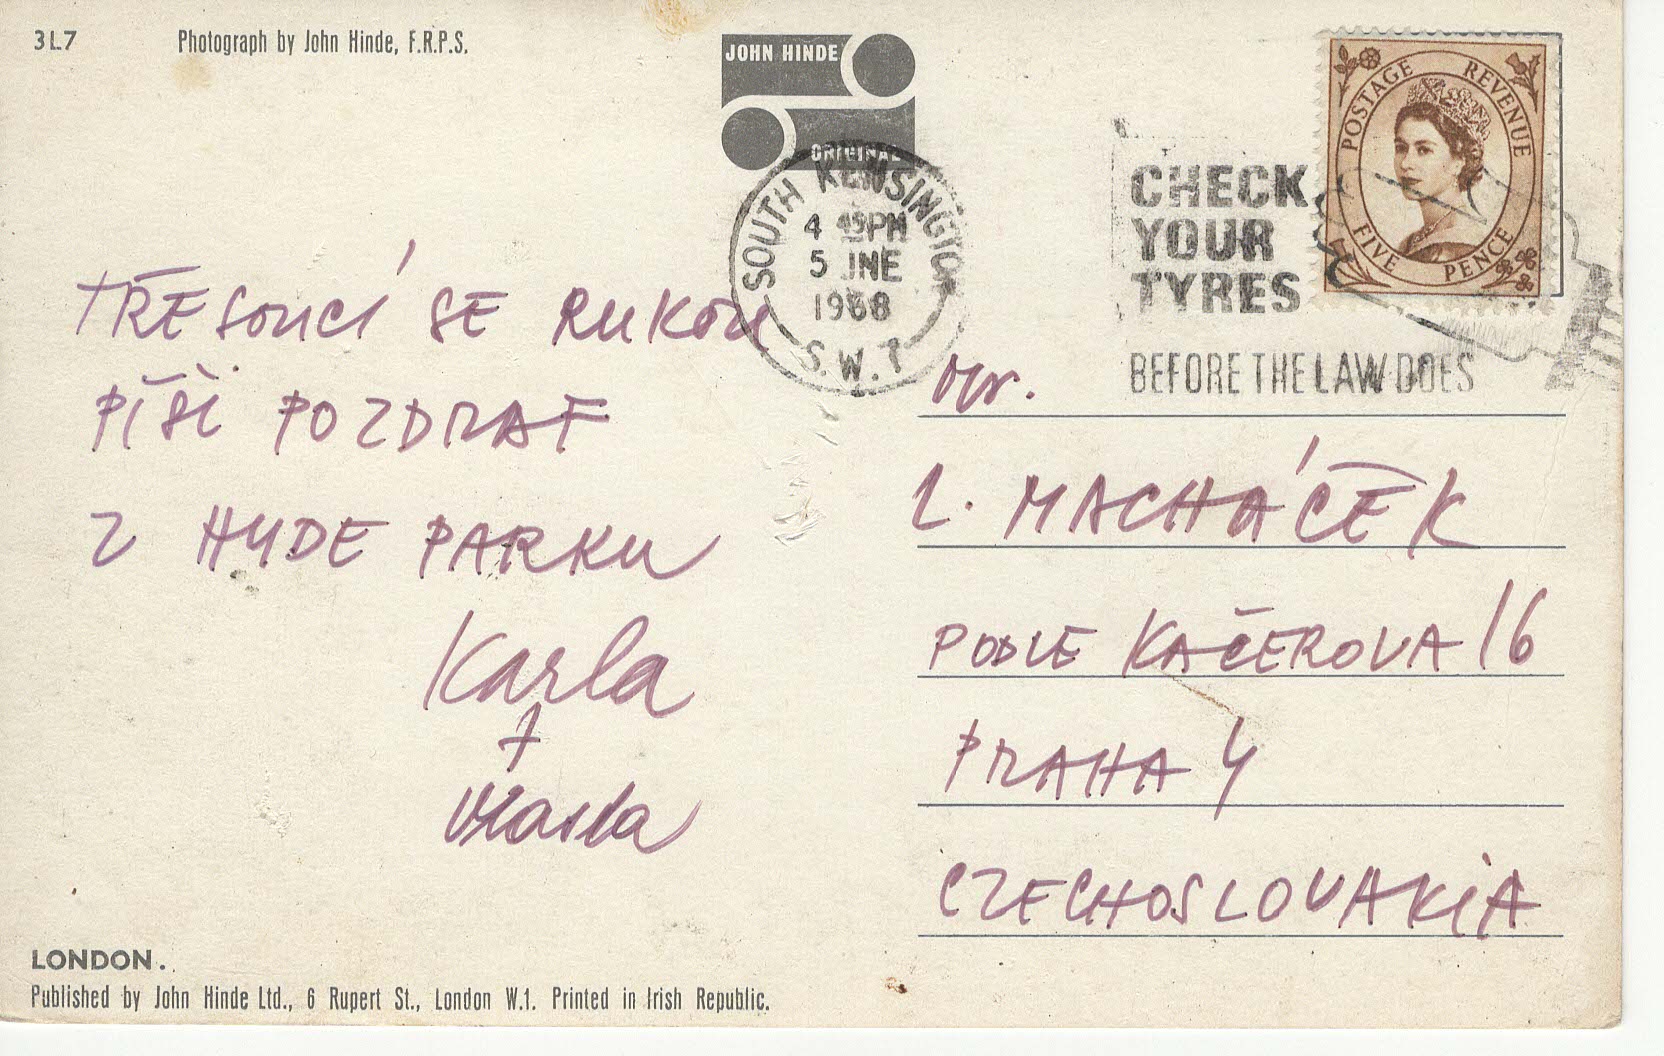 3L7
Photograph by John Hinde, F.R.P.S.
JOHN HINDE
ORIGINAL
SOUTH KENSINGTON
4 45PM
5 JNE
1968
S.W.7
CHECK
YOUR
TYRES
BEFORE THE LAW DOES
POSTAGE REVENUE
FIVE PENCE
TŘESOUCÍ SE RUKOU
PÍŠI POZDRAF
Z HYDE PARKU
Karla
+
Vlasta
Mr.
L. MACHÁČEK
PODLE KAČEROVA 16
PRAHA 4
CZECHOSLOVAKIA
LONDON.
Published by John Hinde Ltd., 6 Rupert St., London W.1. Printed in Irish Republic.